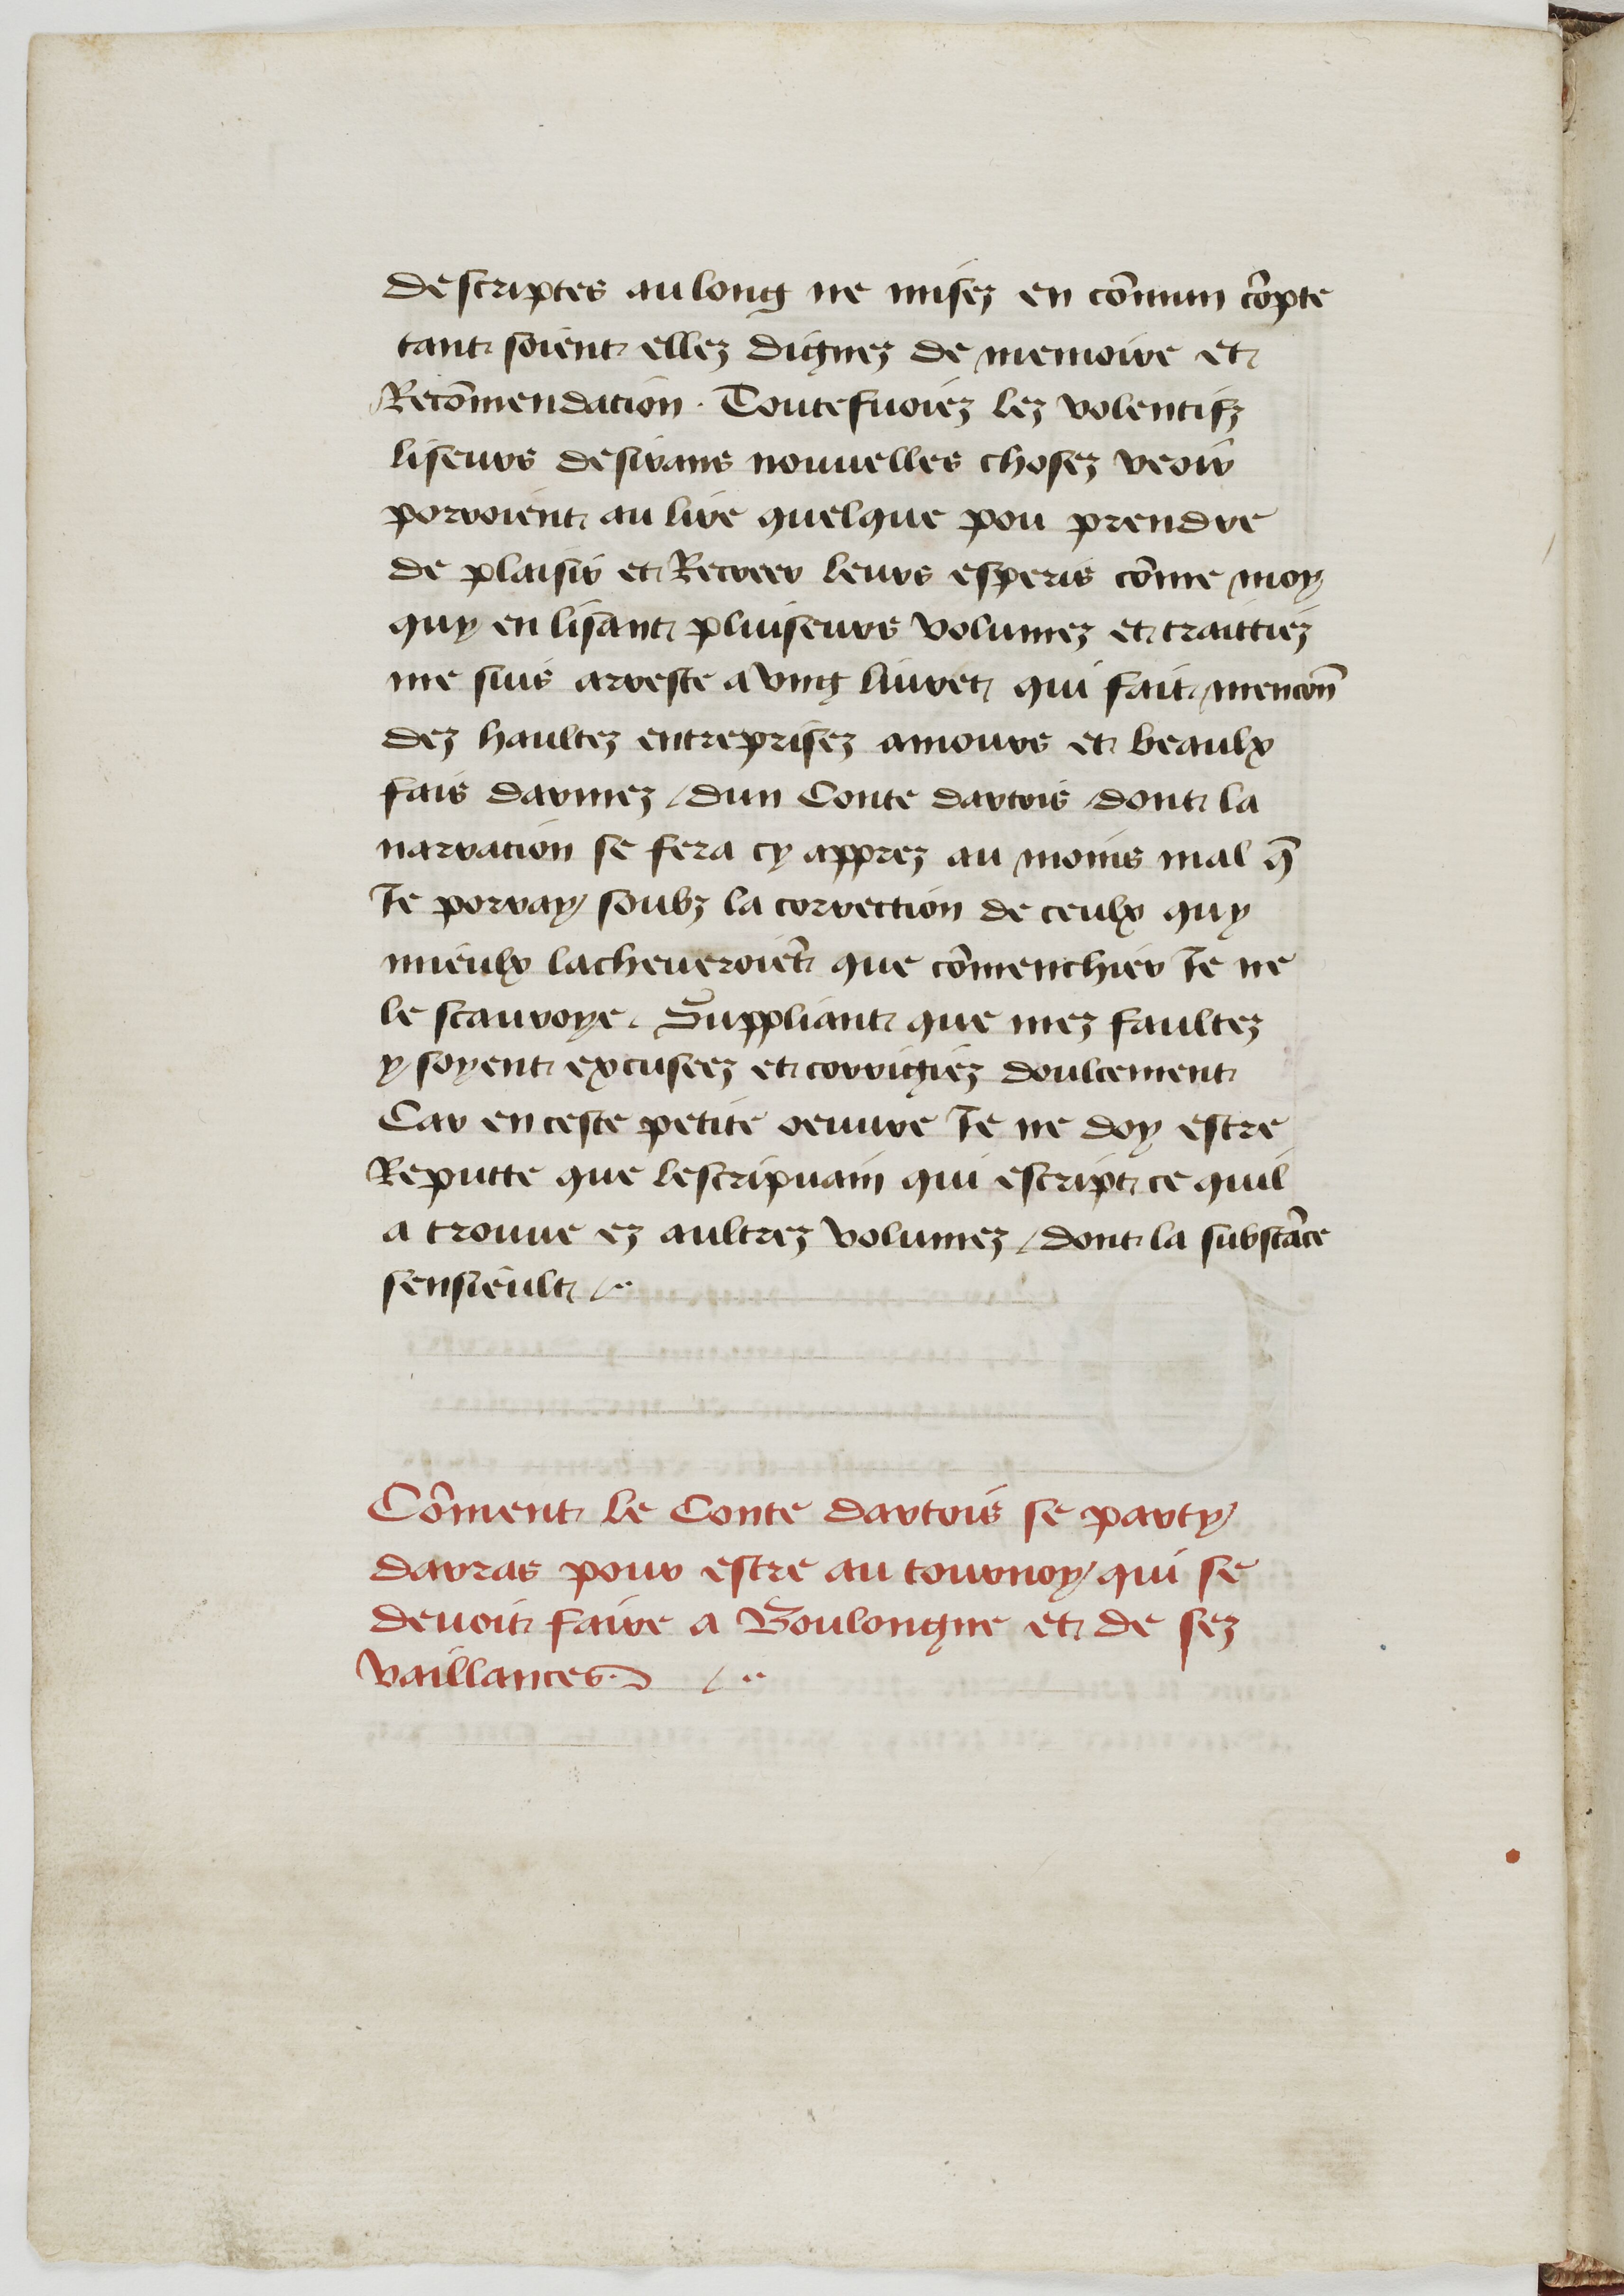 descriptes au long ne misez en cōmun cōpte
tant soient ellez dignez de memoire et
Recōmendacion . Toutefuoiez lez volentifz
liseurs desirans nouvelles chosez veoir
porroient au lire quelque pou prendre
de plaisir et Recreer leurs esperis cōme moy
quy en lisant pluiseurs volumez et traittiez
me suis arreste a vng liuret qui fait mencōn
dez haultez entreprisez amours et beaulx
fais darmez / dun Conte dartois / dont la
narracion se fera cy apprez au moins mal q̄
Je porray / soubz la correction de ceulx quy
mieulx lacheueroiēt que cōmenchier Je ne
le scauroye . Suppliant que mez faultez
y soyent excuseez et corrigiez doulcement
Car en ceste petite oeuure Je ne doy estre
Reputte que lescripuain qui escript ce quil
a trouue ez aultrez volumez / dont la substāce
sensieult /..
Cōment le Conte dartois se party
darras pour estre au tournoy qui se
deuoit faire a Boulongne et de sez
vaillances. /..